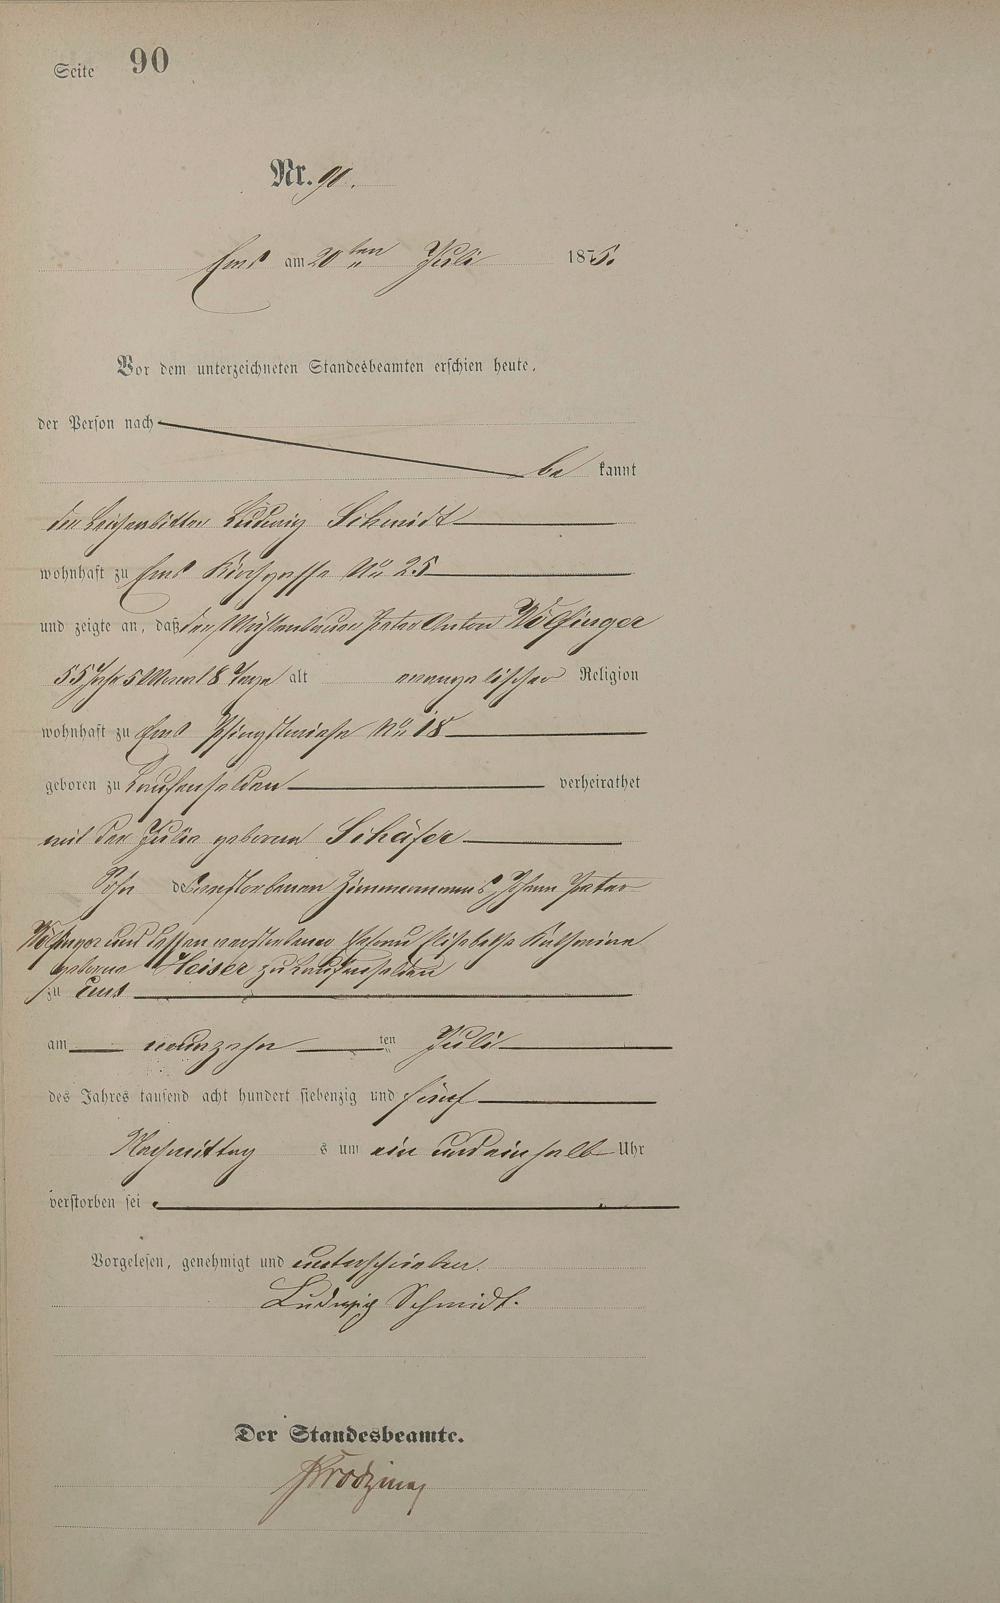 Seite 90
Nr. 90.
Ems am 20ten Juli 1875.
Vor dem unterzeichneten Standesbeamten erschien heute,
der Person nach
be kannt
der Leichenbitter Ludwig Schmidt
wohnhaft zu Ems Kirchgasse No 25
und zeigte an, daß der Mühlenbauer Peter Anton Wölfinger
55 Jahr 5 Monat 18 Tage alt evangelischer Religion
wohnhaft zu Ems Pfingstwiese No 18
geboren zu Laufenselden verheirathet
mit der Julie geborene Schäfer
Sohn des verstorbenen Zimmermanns Johann Peter
Wölfinger und dessen verstorbener Ehefrau Elisabetha Katharina
geborene Heiser zu Laufenselden
zu Ems
am neunzehn ten Juli
des Jahres tausend acht hundert siebenzig und fünf
Nachmittag s um ein und ein halb Uhr
verstorben sei
Vorgelesen, genehmigt und unterschrieben.
Ludwig Schmidt.
Der Standesbeamte.